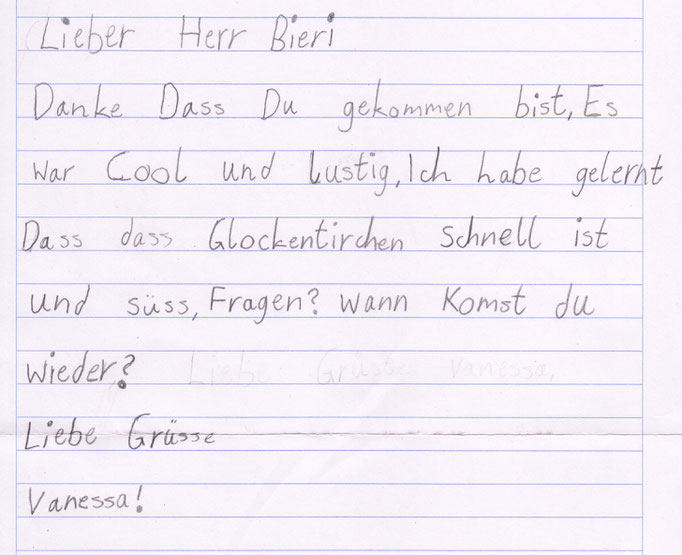 Lieber Herr Bieri
Danke Dass Du gekommen bist, Es
war Cool und Lustig, Ich habe gelernt
Dass dass Glockentirchen schnell ist
und süss, Fragen? wann Komst du
wieder? Liebe Grüsse Vanessa,
Liebe Grüsse
Vanessa!